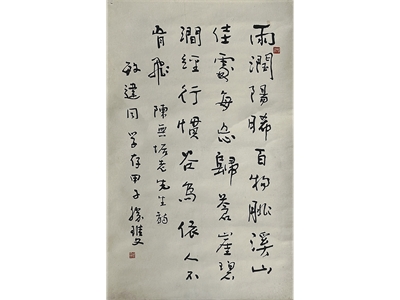 雨潤陽晞百物溪山
佳處每忘歸蒼崖碧
澗經行慣谷鳥依人不
肯飛 陳無垢老先生韵
建同學存甲子